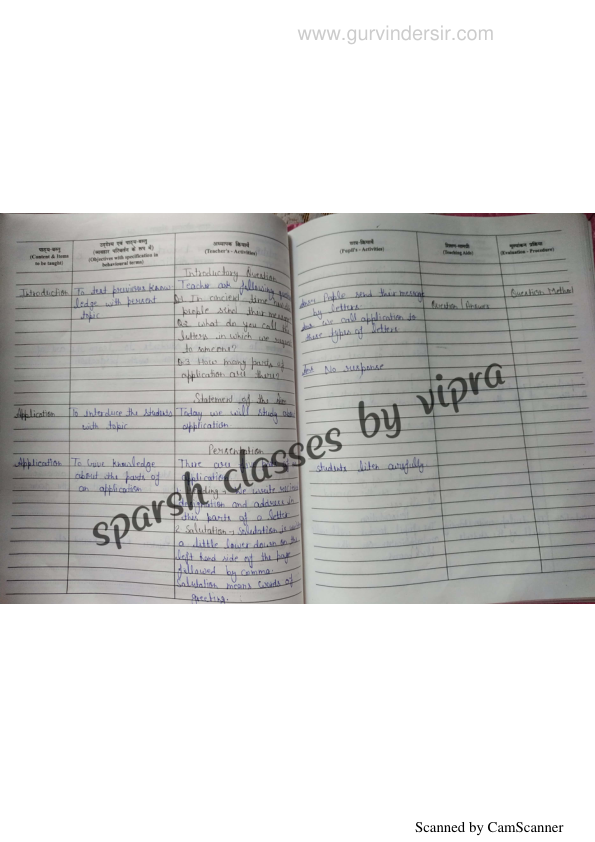 www.gurvindersir.com
पाठ्य-वस्तु
(Content & Items
to be taught)
उद्देश्य एवं पाठ्य-वस्तु
(व्यवहार परिवर्तन के रूप में)
(Objectives with specification in
behavioural terms)
अध्यापक क्रियायें
(Teacher's - Activities)
छात्र-क्रियायें
(Pupil's - Activities)
शिक्षण-सामग्री
(Teaching Aids)
मूल्यांकन प्रक्रिया
(Evaluation - Procedure)
Introductory Question
Introduction
To test previous know
ledge with persent
topic
Teacher ask following
Q1 In ancient time how
people send their message
Q2 what do you call the
letters in which we request
to someone?
Q3 How many parts of
application are there?
Ans People send their message
by letters
Ans we call application to
these types of letters
Ans No response
Question Answer
Question Method
Statement of the Aim
Application
To introduce the students
with topic
Today we will study about
application
Persentation
Application
To Gave knowledge
about the parts of
an application
There are
application
we write
designation and address in
this parts of a letter
2 Salutation → Salutation is
a little lower down on the
left hand side of the page
followed by comma.
Salutation means words of
greeting.
students listen carefully
sparsh classes by vipra
Scanned by CamScanner